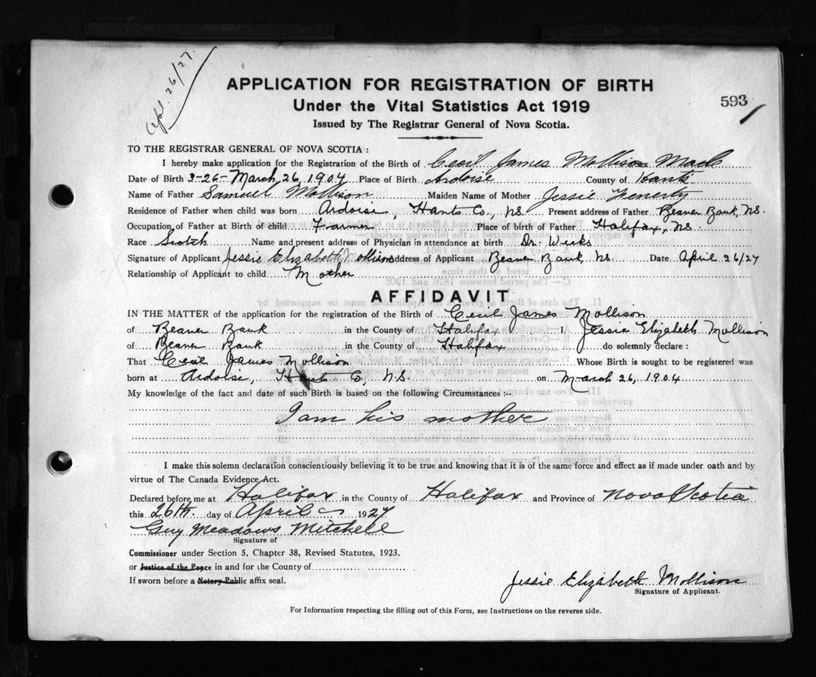 Apl. 26/27.
APPLICATION FOR REGISTRATION OF BIRTH
593
Under the Vital Statistics Act 1919
Issued by The Registrar General of Nova Scotia.
TO THE REGISTRAR GENERAL OF NOVA SCOTIA :
I hereby make application for the Registration of the Birth of Cecil James Mollison Male
Date of Birth 3-26- March, 26, 1904 Place of Birth Ardoise County of Hants
Name of Father Samuel Mollison Maiden Name of Mother Jessie Fenerty
Residence of Father when child was born Ardoise, Hants Co., N.S. Present address of Father Beaver Bank, N.S.
Occupation of Father at Birth of child Farmer Place of birth of Father Halifax, N.S.
Race Scotch Name and present address of Physician in attendance at birth Dr. Weeks
Signature of Applicant Jessie Elizabeth Mollison Address of Applicant Beaver Bank, N.S. Date April 26/27
Relationship of Applicant to child Mother
AFFIDAVIT
IN THE MATTER of the application for the registration of Birth of Cecil James Mollison
of Beaver Bank in the County of Halifax I, Jessie Elizabeth Mollison
of Beaver Bank in the County of Halifax do solemnly declare :
That Cecil James Mollison Whose Birth is sought to be registered was
born at Ardoise, Hants Co, N.S. on March 26, 1904
My knowledge of the fact and date of such Birth is based on the following Circumstances :-
I am his mother
I make this solemn declaration conscientiously believing it to be true and knowing that it is of the same force and effect as if made under oath and by
virtue of The Canada Evidence Act.
Declared before me at Halifax in the County of Halifax and Province of Nova Scotia
this 26th. day of April 1927
Guy Meadows Mitchell
Signature of
Commissioner under Section 5, Chapter 38, Revised Statutes, 1923.
or Justice of the Peace in and for the County of
If sworn before a Notary Public affix seal.
Jessie Elizabeth Mollison
Signature of Applicant.
For Information respecting the filling out of this Form, see Instructions on the reverse side.